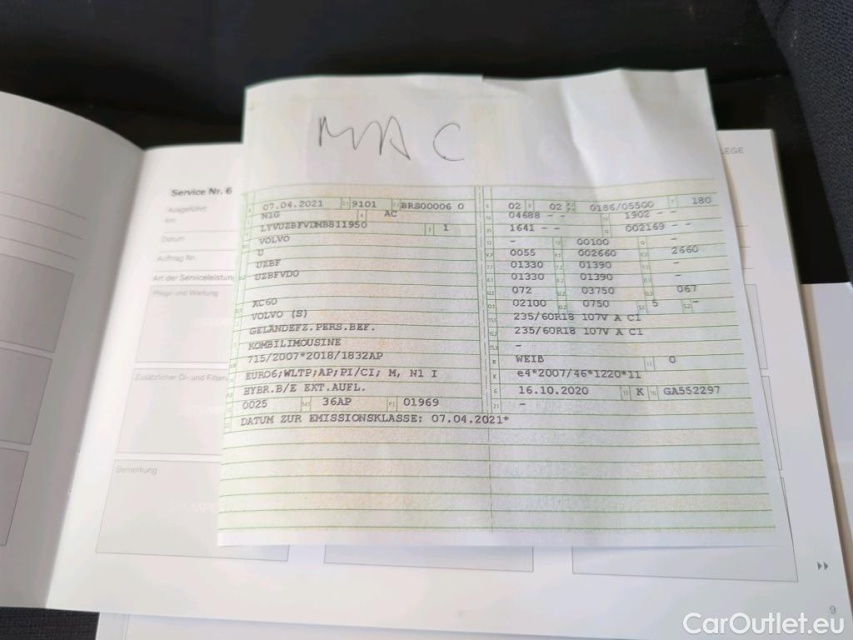 MAC
LEGE
Service Nr. 6
Ausgeführt
km
Datum
Auftrag Nr.
Art der Serviceleistung
Pflege und Wartung
Zusätzlicher Öl- und Filter
Bemerkung
07.04.2021 9101 BRS00006 0
N1G AC
1
VOLVO
U
UZBF
UZBFVD0
XC60
VOLVO (S)
GELÄNDEFZ.PERS.BEF.
KOMBILIMOUSINE
715/2007*2018/1832AP
EURO6;WLTP;AP;PI/CI; M, N1 I
HYBR.B/E EXT.AUFL.
0025 36AP 01969
DATUM ZUR EMISSIONSKLASSE: 07.04.2021*
02 02 0186/05500 180
04688 - - 1902 - -
1641 - - 002169 - -
- 00100 -
0055 002660 2660
01330 01390 -
01330 01390 -
072 03750 067
02100 0750 5 -
235/60R18 107V A C1
235/60R18 107V A C1
-
WEIß 0
e4*2007/46*1220*11
16.10.2020 K GA552297
-
9
CarOutlet.eu